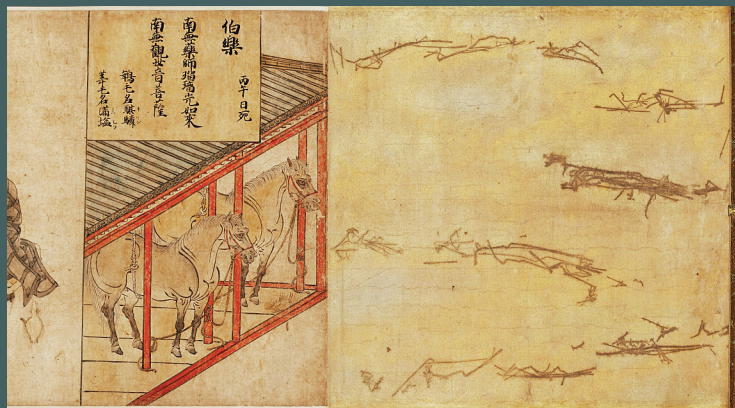 伯樂
丙午日死
南無藥師瑠璃光如來
南無觀世音菩薩
毛名騏驎
葦毛名滿塩